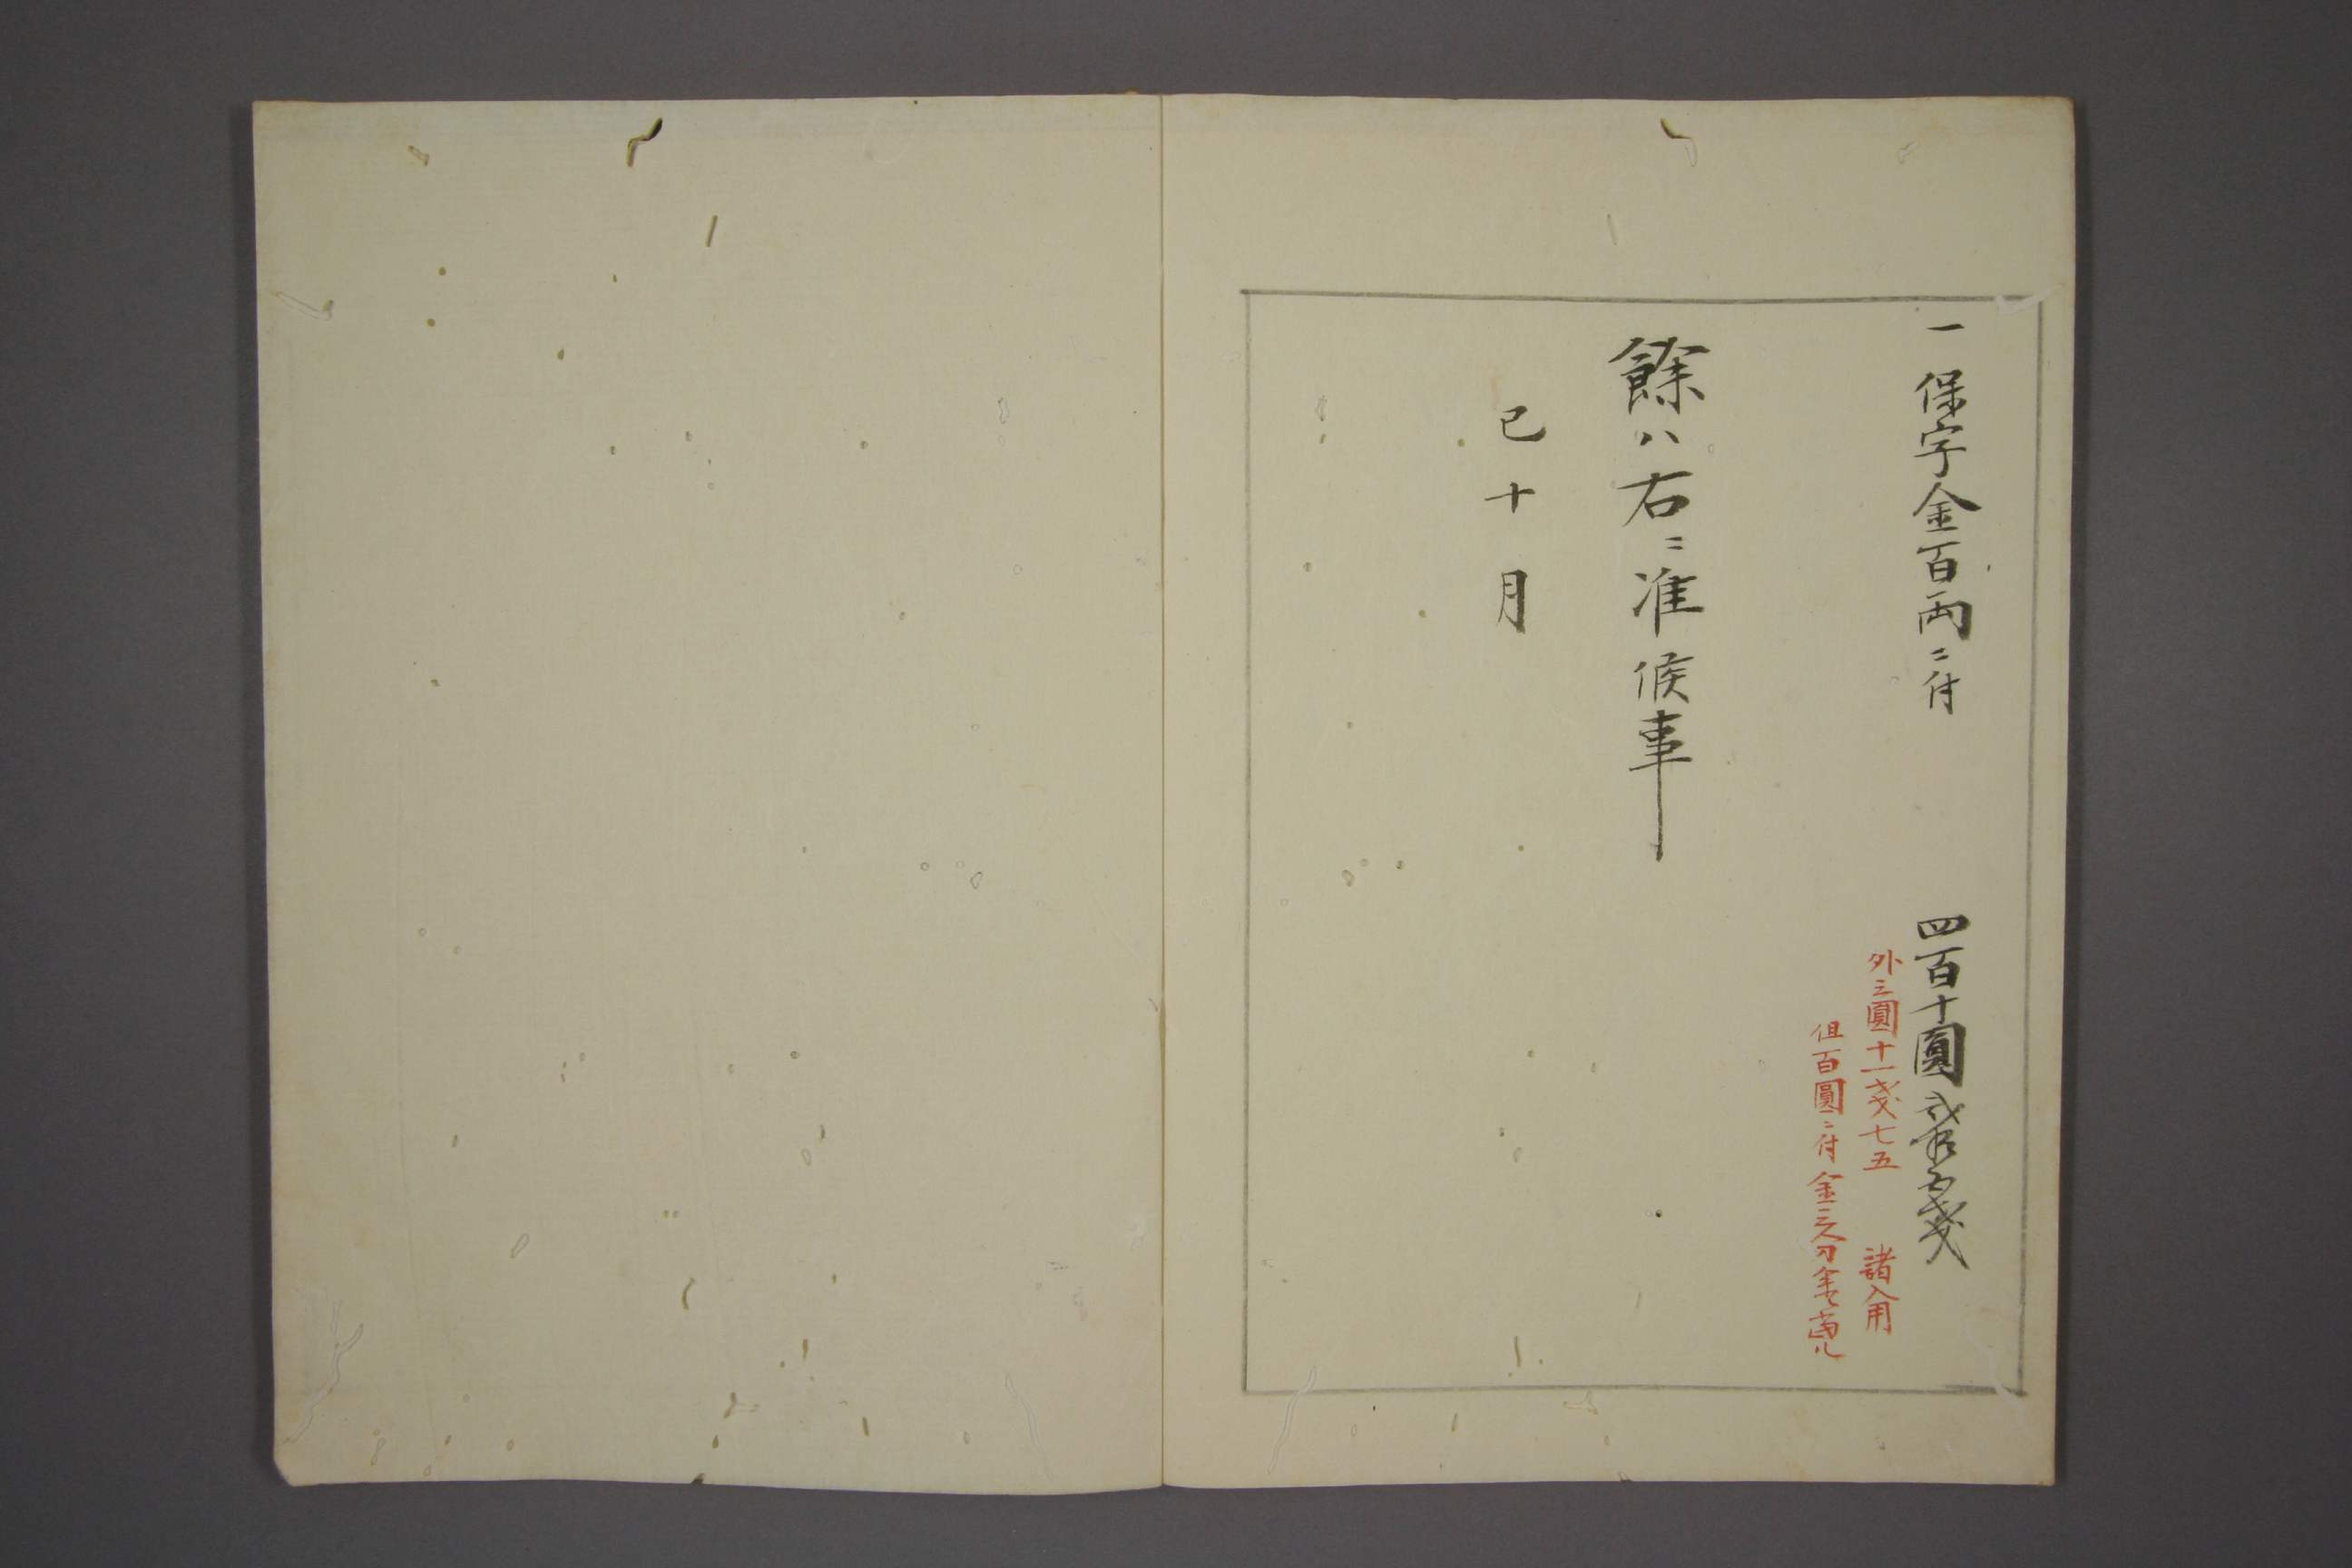 一保字金百両ニ付　四百十圓弐拾五戔
外三圓十一戔七五　諸入用
但百圓ニ付金三分
餘ハ右ニ准候事
巳十月